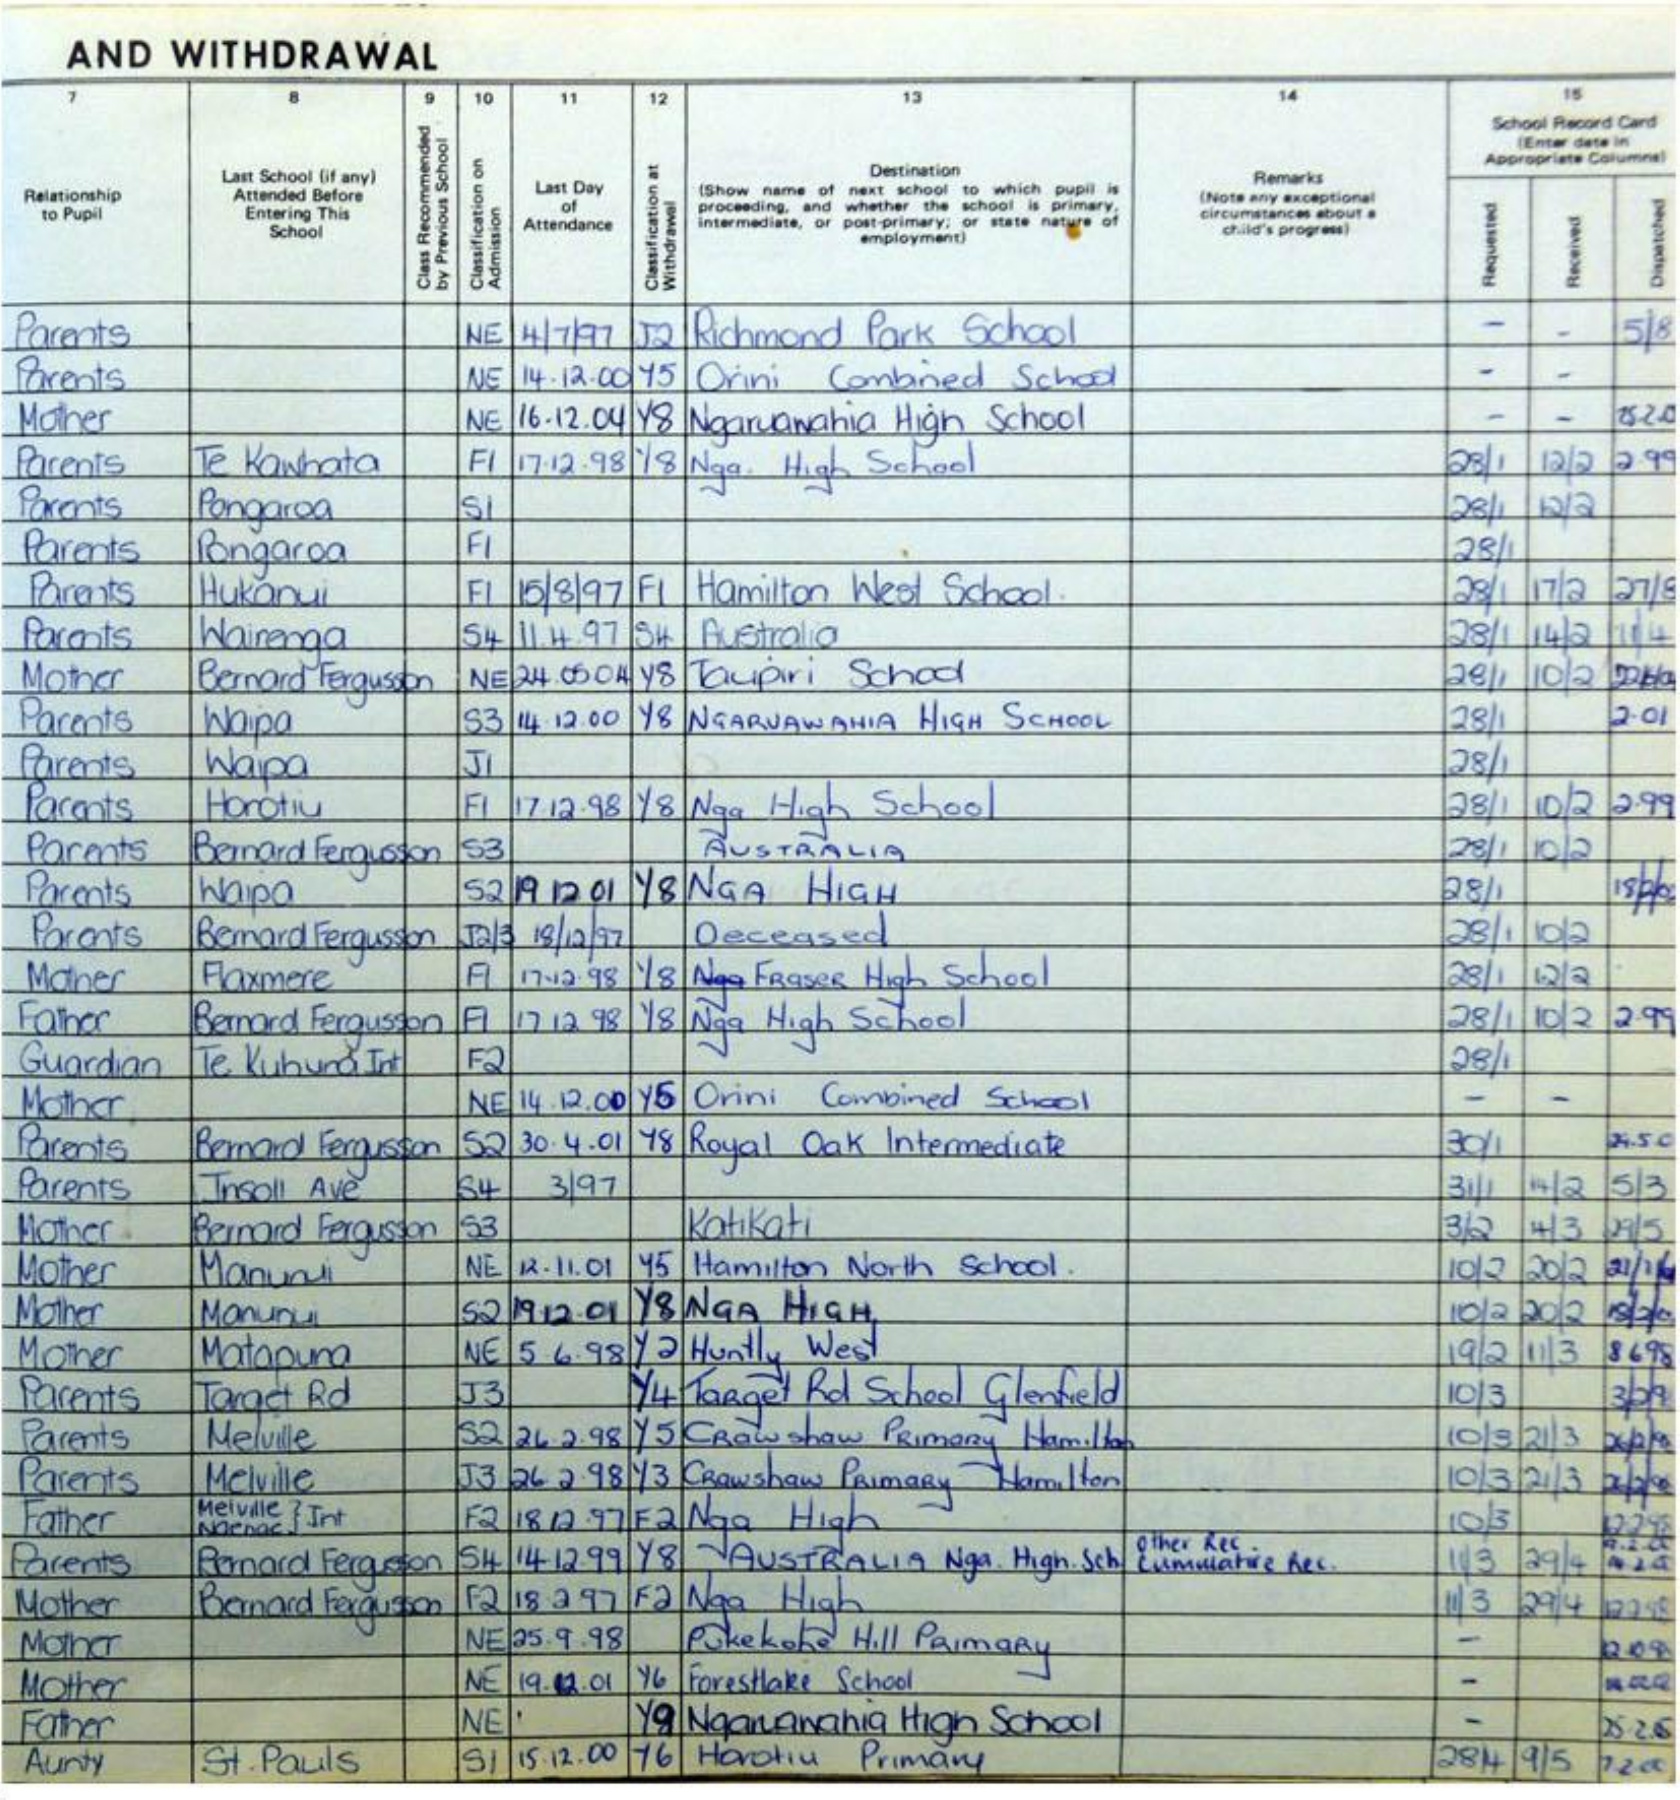 AND WITHDRAWAL
7 8 9 10 11 12 13 14 15
Relationship to Pupil
Last School (if any) Attended Before Entering This School
Class Recommended by Previous School
Classification on Admission
Last Day of Attendance
Classification at Withdrawal
Destination (Show name of next school to which pupil is proceeding, and whether the school is primary, intermediate, or post-primary; or state nature of employment)
Remarks (Note any exceptional circumstances about a child's progress)
School Record Card (Enter date in Appropriate Columns)
Requested Received Dispatched
Parents NE 4/7/97 J2 Richmond Park School - - 5/8
Parents NE 14.12.00 Y5 Orini Combined School - -
Mother NE 16.12.04 Y8 Ngaruawahia High School - -
Parents Te Kawhata F1 17.12.98 Y8 Nga. High School 28/1 12/2 2.99
Parents Pongaroa S1 28/1 12/2
Parents Pongaroa F1 28/1
Parents Hukanui F1 15/8/97 F1 Hamilton West School. 28/1 17/2 27/8
Parents Wairenga S4 11.4.97 S4 Australia 28/1 14/2 11/4
Mother Bernard Fergusson NE 24.05.04 Y8 Taupiri School 28/1 10/2
Parents Waipa S3 14.12.00 Y8 NGARUAWAHIA HIGH SCHOOL 28/1 2.01
Parents Waipa J1 28/1
Parents Horotiu F1 17.12.98 Y8 Nga High School 28/1 10/2 2.99
Parents Bernard Fergusson S3 AUSTRALIA 28/1 10/2
Parents Waipa S2 19 12 01 Y8 NGA HIGH 28/1
Parents Bernard Fergusson J2/3 18/12/97 Deceased 28/1 10/2
Mother Flaxmere F1 17.12.98 Y8 Nga FRASER High School 28/1 12/2
Father Bernard Fergusson F1 17 12 98 Y8 Nga High School 28/1 10/2 2.99
Guardian Te Kuhuna Int F2 28/1
Mother NE 14.12.00 Y5 Orini Combined School - -
Parents Bernard Fergusson S2 30.4.01 Y8 Royal Oak Intermediate 30/1
Parents Insoll Ave S4 3/97 31/1 14/2 5/3
Mother Bernard Fergusson S3 Katikati 3/2 4/3 29/5
Mother Manunui NE 12.11.01 Y5 Hamilton North School. 10/2 20/2
Mother Manunui S2 19.12.01 Y8 NGA HIGH 10/2 20/2
Mother Matapuna NE 5.6.98 Y2 Huntly West 19/2 11/3 8698
Parents Target Rd J3 Y4 Target Rd School Glenfield 10/3
Parents Melville S2 26.2.98 Y5 Crawshaw Primary Hamilton 10/3 21/3
Parents Melville J3 26.2.98 Y3 Crawshaw Primary Hamilton 10/3 21/3
Father Melville } Int F2 18 12 97 F2 Nga High 10/3
Parents Bernard Fergusson S4 14.12.99 Y8 AUSTRALIA Nga. High. Sch Other Rec. Cummulative Rec. 11/3 29/4
Mother Bernard Fergusson F2 18.2.97 F2 Nga High 11/3 29/4
Mother NE 25.9.98 Pukekohe Hill Primary -
Mother NE 19.12.01 Y6 Forestlake School -
Father NE Y9 Ngaruawahia High School - 25.2.05
Aunty St. Pauls S1 15.12.00 Y6 Horotiu Primary 28/4 9/5